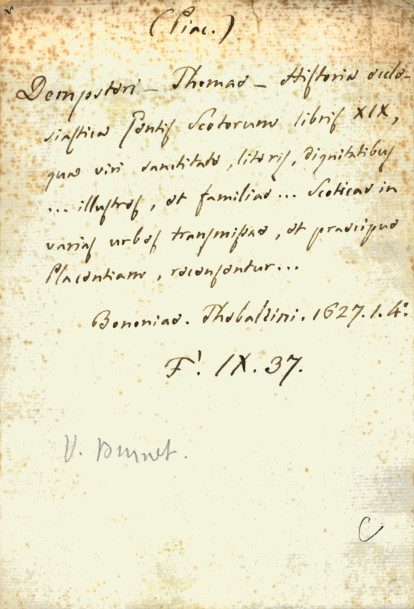 (Piac.)
Dempsteri - Thomae - Historia eccle-
siastica Gentis Scotorum libris XIX,
quae viri sanctitate, literis, dignitatibus
... illustres, et familiae ... Scoticae in
varias urbes transmissae, et praecipue
Placentiam, recensentur...
Bononiae. Thebaldini. 1627. 1. 4°.
F'. IX. 37.
V. Burnet.
C